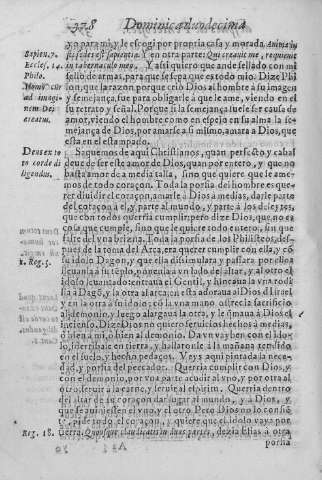 Dominica duodecima
yo para mi, y le escogi por propria casa y morada. Anima iu
sti sedes est sapientiæ. Y en otra parte: Qui creauit me, requieuit
in tabernaculo meo. Y assi quiero que ande sellado con mi
sello de armas, para que se sepa que es todo mio. Dize Phi
lon, que la razon, porque crio Dios al hombre a su imagen
y semejança, fue para obligarle a que le ame, viendo en el
su retrato y señal. Porque si la semejança suele ser causa de
amor, viendo el hombre como en espejo en su alma la se
mejança de Dios, por amarse a si mismo, amara a Dios, que
esta en el estampado.
Saquemos de aqui Christianos, quan perfecto y cabal
deue de ser este amor de Dios, quan por entero, y que no
basta amor de a media talla, sino que quiere que le ame-
mos de todo coraçon. Toda la porfia del hombre es que-
rer diuidir el coraçon, amar a Dios a medias, darle parte
del coraçon a el, y parte al mundo, y parte a los deleytes,
que con todos querria cumplir; pero dize Dios, que no es
cosa que cumple, sino que le quiere todo entero, sin que
falte del vna brizna. Toda la porfia de los Philisteos, des-
pues de la toma del Arca, era querer cumplir con ella, y cõ
su idolo Dagon, y que ella dissimulara y passara por ello:
lleuanla a su templo, ponenla a vn lado del altar, y al otro el
idolo;
la a Dagõ, y la otra al arca;
y la otra a su idolo; cõ la vna mano ofrece la sacrificio
al demonio, y luego alargaua la otra, y le quemaua à Dios el
incienso. Dize Dios no quiero seruicios hechos a medias,
o bien a mi, o bien al demonio. Da vn vayben con el Ido-
lo, derribale en tierra, y hallaronle a la mañana tendido
en el suelo, y hecho pedaços. Veys aqui pintada la nece-
dad, y porfia del peccador. Querria cumplir con Dios, y
con el demonio, por vna parte acudir al vno, y por otra al
otro, seruir a la carne, y al espiritu. Querria dentro
del altar de su coraçon dar lugar al mundo, y a Dios, y
que se auiniessen el vno, y el otro. Pero Dios no lo consiẽ
te, pide todo el coraçon, y quiere que el idolo vaya por
tierra. Quousque claudicatis in duas partes, dezia Elias à otra
porfia
Sapien. 7.
Eccles. 24.
Philo.
Homo cur
ad imagi-
nem Dei
creatus.
Deus ex to
to corde di
ligendus.
1. Reg. 5.
Reg. 18.